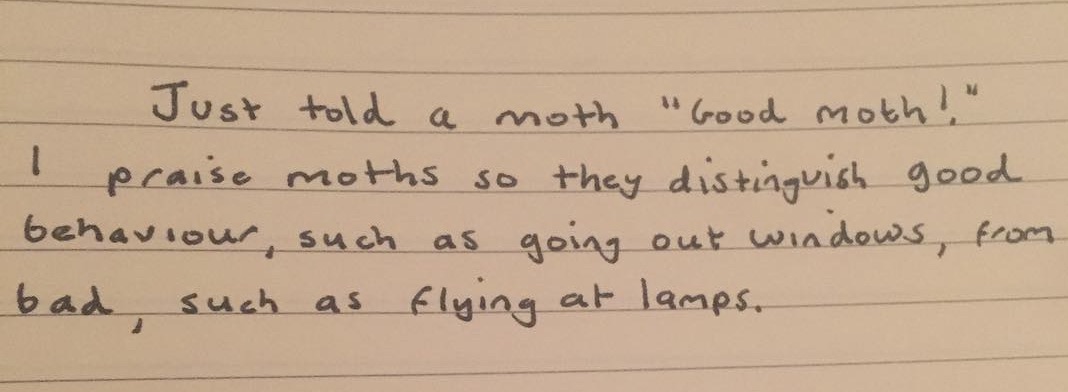 Just told a moth "Good moth!"
I praise moths so they distinguish good
behaviour, such as going out windows, from
bad, such as flying at lamps.